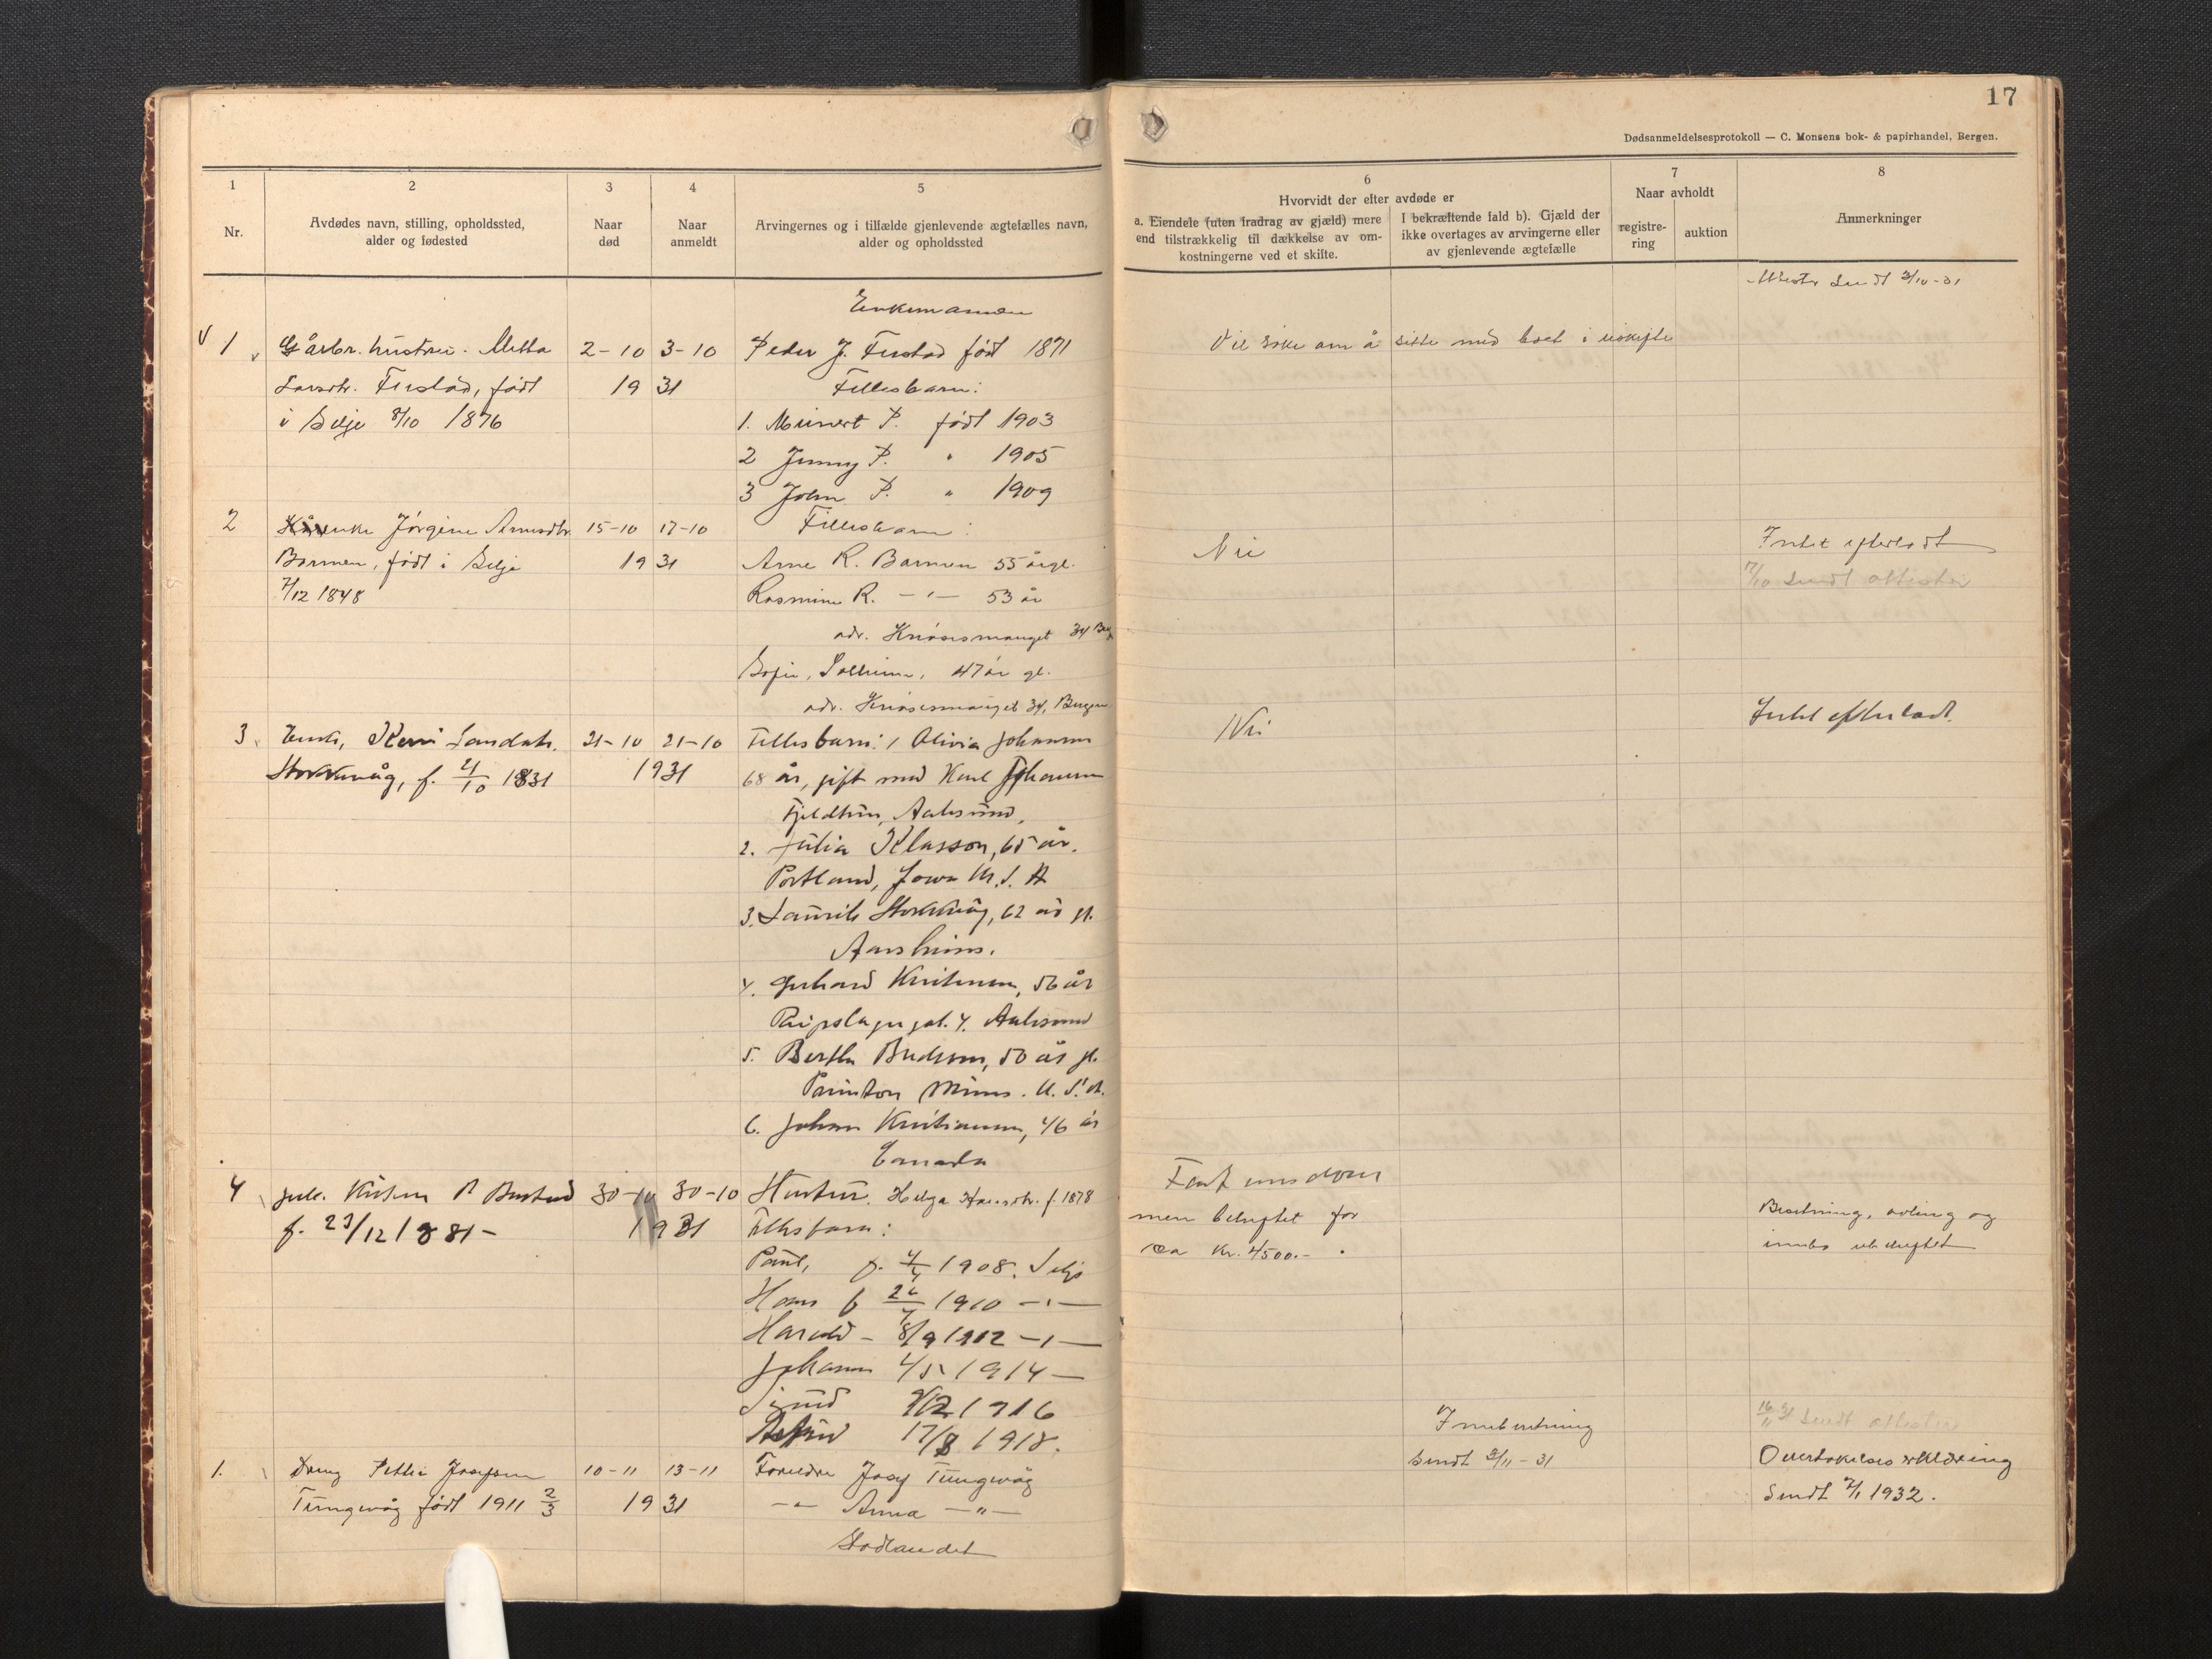 17
Dødsanmeldelsesprotokoll — C. Monsens bok- & papirhandel, Bergen.
1
2
3
4
5
6
7
8
Nr.
Avdødes navn, stilling, opholdssted,
alder og fødested
Naar
død
Naar
anmeldt
Arvingernes og i tilfælde gjenlevende ægtefælles navn,
alder og opholdssted
Hvorvidt der efter avdøde er
a. Eiendele (uten fradrag av gjæld) mere
end tilstrækkelig til dækkelse av om-
kostningerne ved et skifte.
I bekræftende fald b). Gjæld der
ikke overtages av arvingerne eller
av gjenlevende ægtefælle
Naar avholdt
registre-
ring
auktion
Anmerkninger
Enkemannen
sendt 3/10-31
1 Gårbr. hustru. Metta 2-10 3-10 Peder J. Furstad født 1871 Vil søke om å sitte med boet i uskifte
Larsdtr. Furstad, født 19 31 Fellesbarn:
i Selje 8/10 1876 1. Meinert P. født 1903
2 Jenny P. " 1905
3 John P. " 1909
2 enke Jørgine Arnesdtr. 15-10 17-10 Fellesbarn:
Barmen, født i Selje 19 31 Arne R. Barmen 55 år gl. Nei Intet efterladt
7/12 1848 Rasmine R. -"- 53 år 17/10 sendt attester
adr. 34 Berg
Sofie, Solheim, 47 år gl.
adr. 34, Bergen
3. Enke, Larsdatr. 21-10 21-10 Fellesbarn: 1 Olivia Johansen Nei Intet efterladt.
f. 21/10 1831 1931 68 år, gift med Karl Johansen
Aalesund,
2. Julia Klasson, 65 år.
Portland, Iowa U.S.A
3. Laurits 62 år gl.
Aarsheim.
4. Gerhard Kristensen, 56 år
4. Aalesund
5. Bertha 50 år gl.
Minns. U.S.A.
6. Johan Kristiansen, 46 år
Canada
4 30-10 30-10 Hustru. Helga Hansdtr. f. 1878 Fast eiendom
f. 23/12 1881 - 1931 Fellesbarn: men beheftet for Besetning, avling og
Paul, f. 4/4 1908. Selje ca kr. 4500.- innbo ubeheftet
Hans f 26/7 1910 -"-
Harald - 8/9 1912 -"-
Johann 4/5 1914 -
1916 Innberetning 16/11 31 sendt attester
17/8 1918. sendt 3/11-31 Overtakelseserklæring
1. Dreng Petter Josefsen 10-11 13-11 Foreldre Josef Tungevåg sendt 2/1 1932.
Tungevåg født 1911 2/3 19 31 -"- Anna -"-
Stadlandet